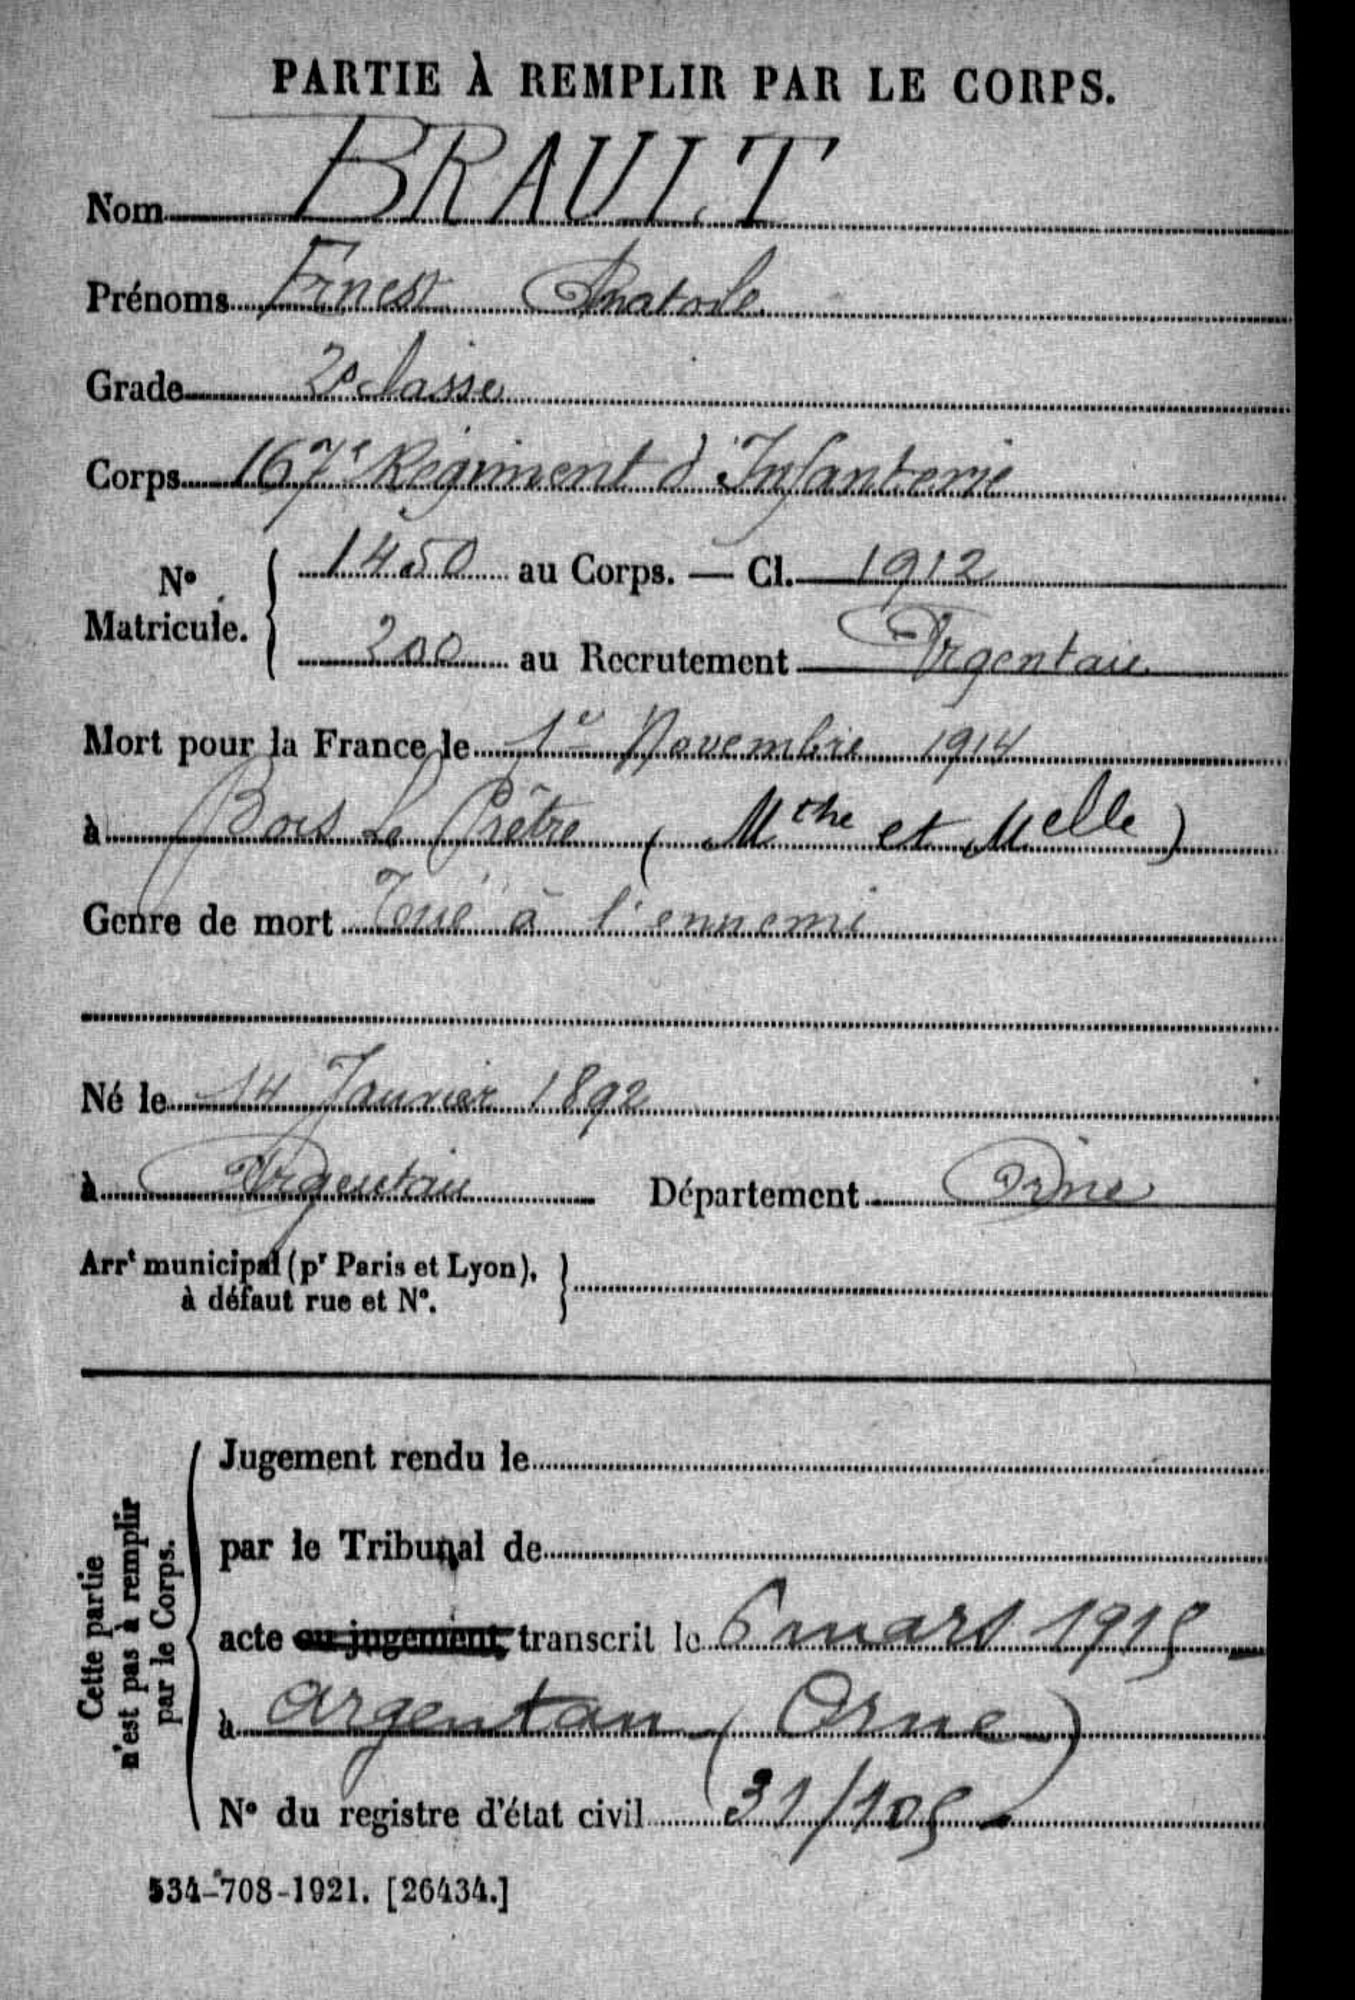 PARTIE À REMPLIR PAR LE CORPS.
Nom BRAULT
Prénoms Ernest Anatole
Grade 2e classe
Corps 167e Régiment d'Infanterie
No Matricule. 1450 au Corps. — Cl. 1912
200 au Recrutement Argentan
Mort pour la France le 1e Novembre 1914
à Bois Le Prêtre (Mthe et Melle)
Genre de mort Tué à l'ennemi
Né le 14 Janvier 1892
à Argentan Département Orne
Arrt municipal (pr Paris et Lyon),
à défaut rue et No.
Cette partie
n'est pas à remplir
par le Corps.
Jugement rendu le
par le Tribunal de
acte ou jugement, transcrit le 6 mars 1915
à Argentan (Orne)
No du registre d'état civil 31/105
534-708-1921. [26434.]